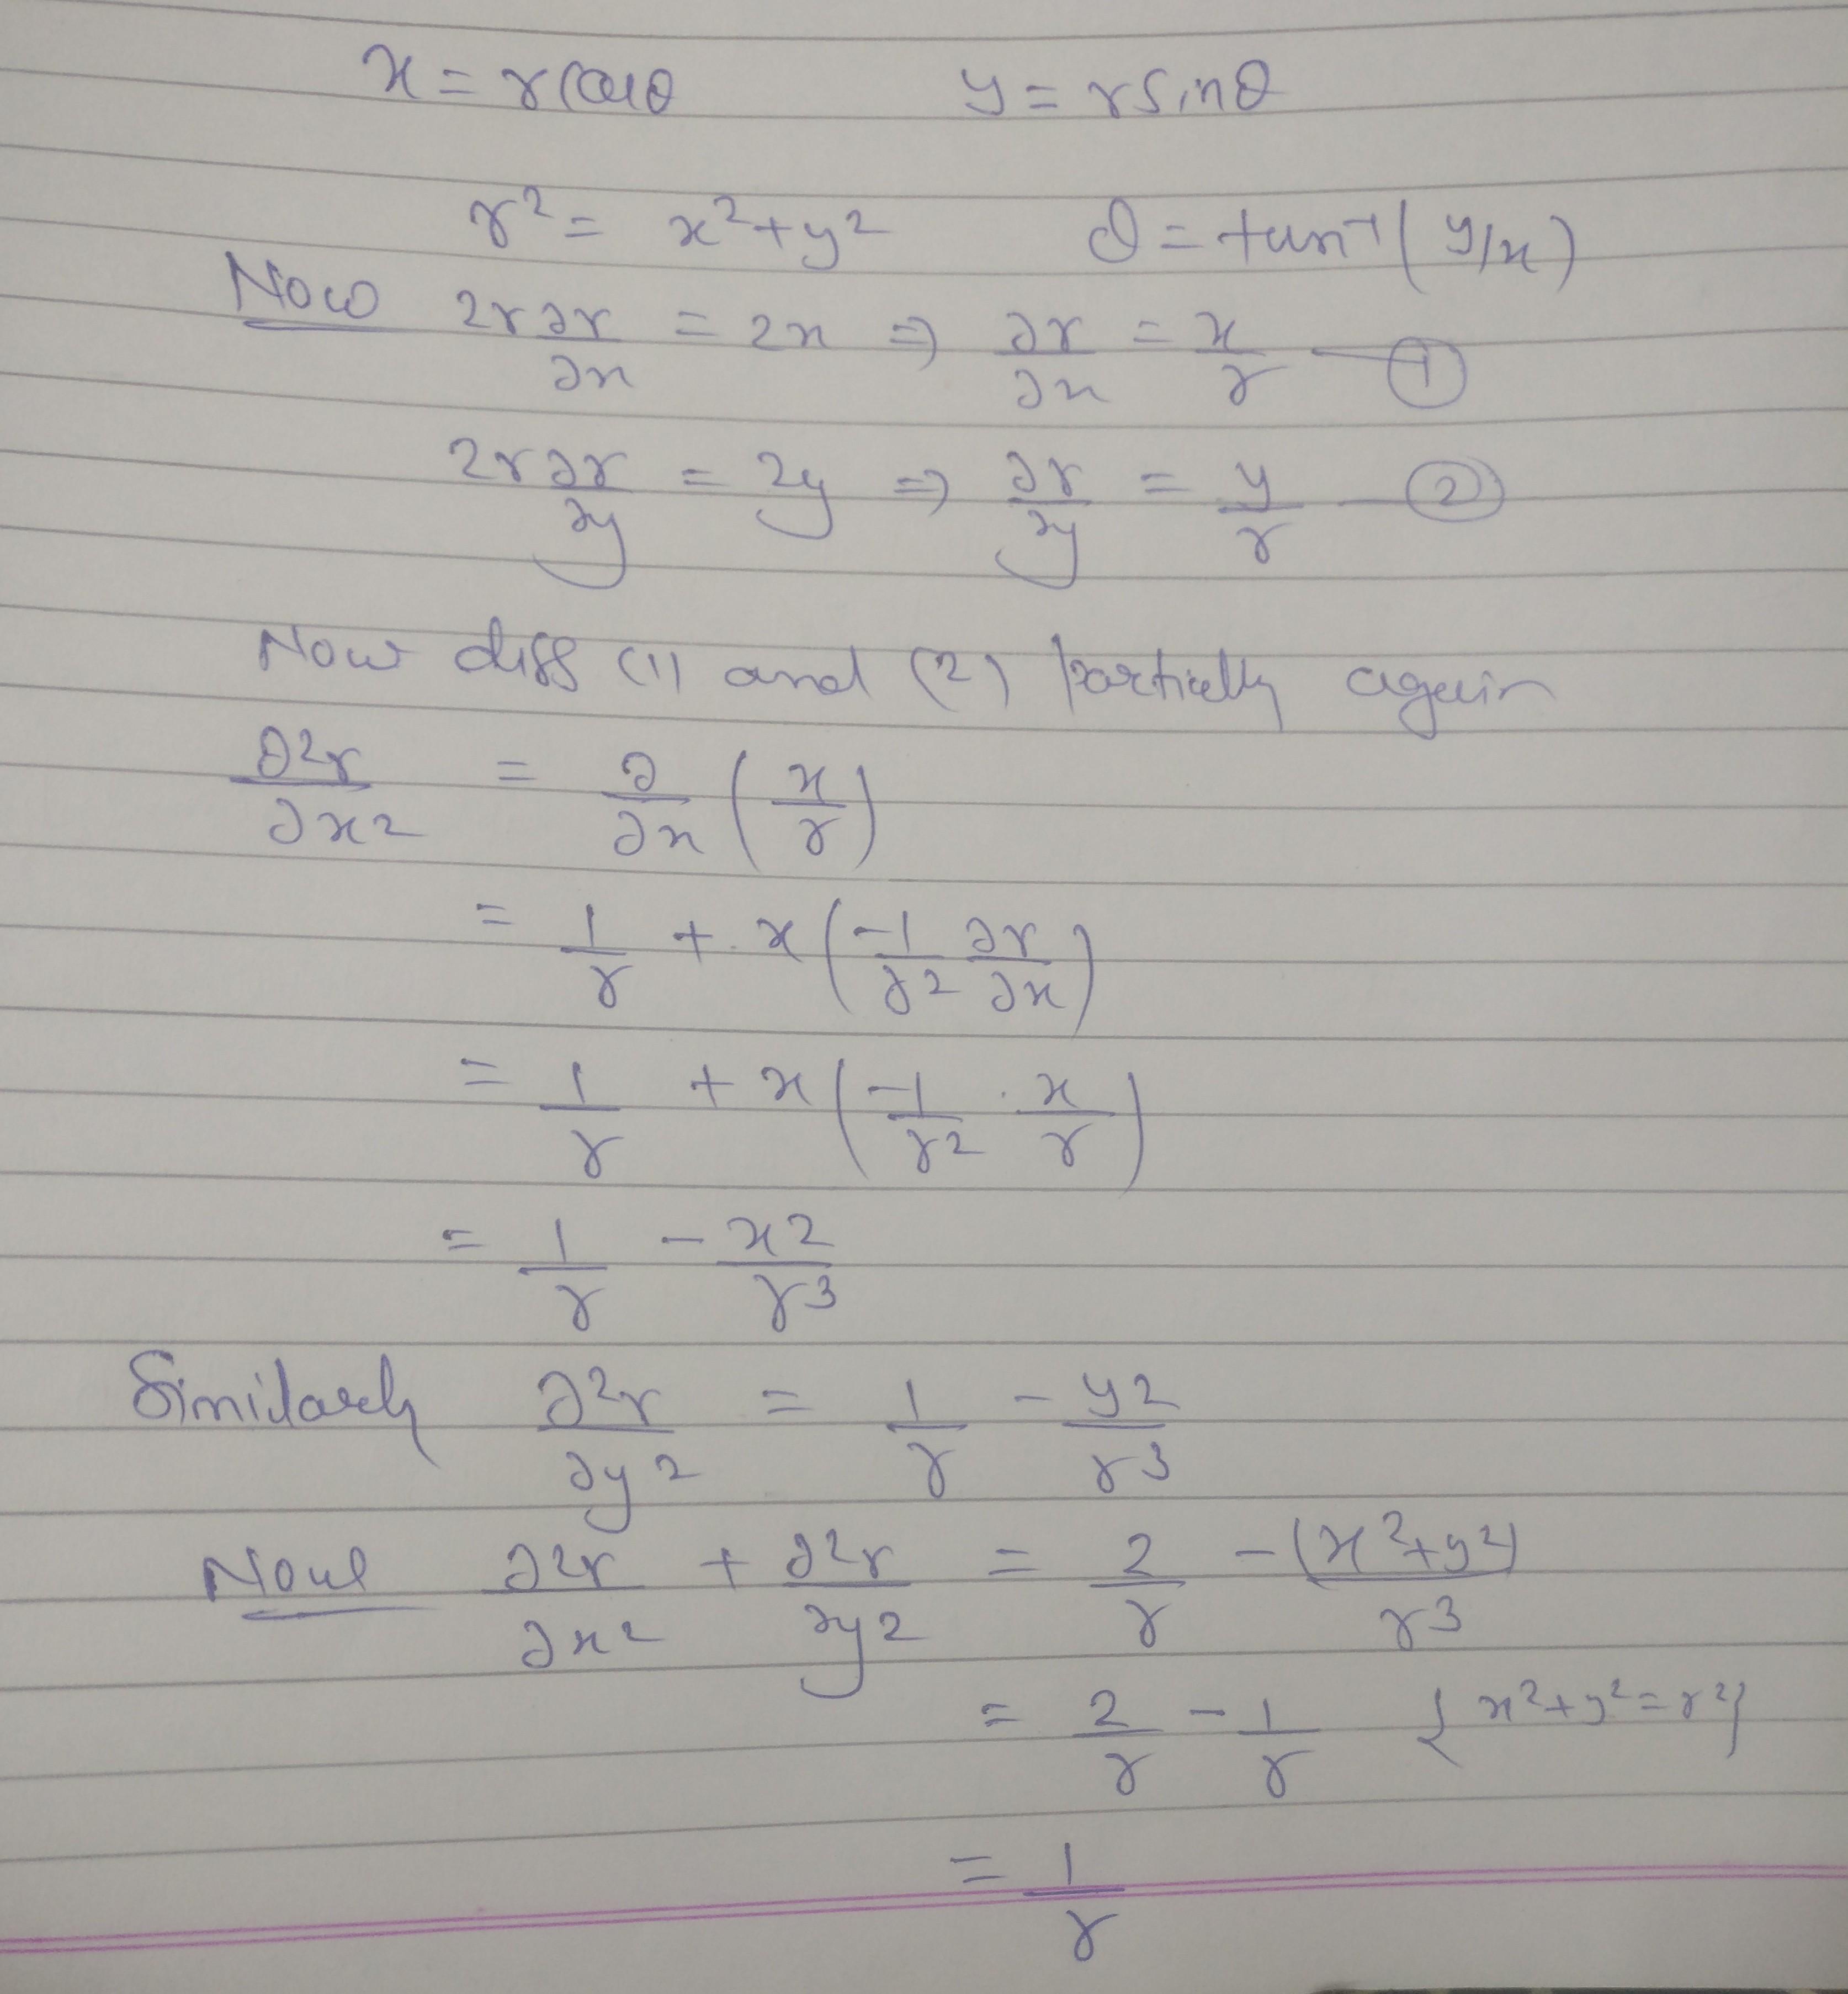 x = r cosθ y = r sinθ
r² = x²+y² θ = tan⁻¹(y/x)
Now 2r ∂r/∂x = 2x ⇒ ∂r/∂x = x/r — ①
2r ∂r/∂y = 2y ⇒ ∂r/∂y = y/r — ②
Now diff (1) and (2) partially again
∂²r/∂x² = ∂/∂x (x/r)
= 1/r + x(-1/r² ∂r/∂x)
= 1/r + x(-1/r² · x/r)
= 1/r - x²/r³
Similarly ∂²r/∂y² = 1/r - y²/r³
Now ∂²r/∂x² + ∂²r/∂y² = 2/r - (x²+y²)/r³
= 2/r - 1/r {x²+y²=r²}
= 1/r